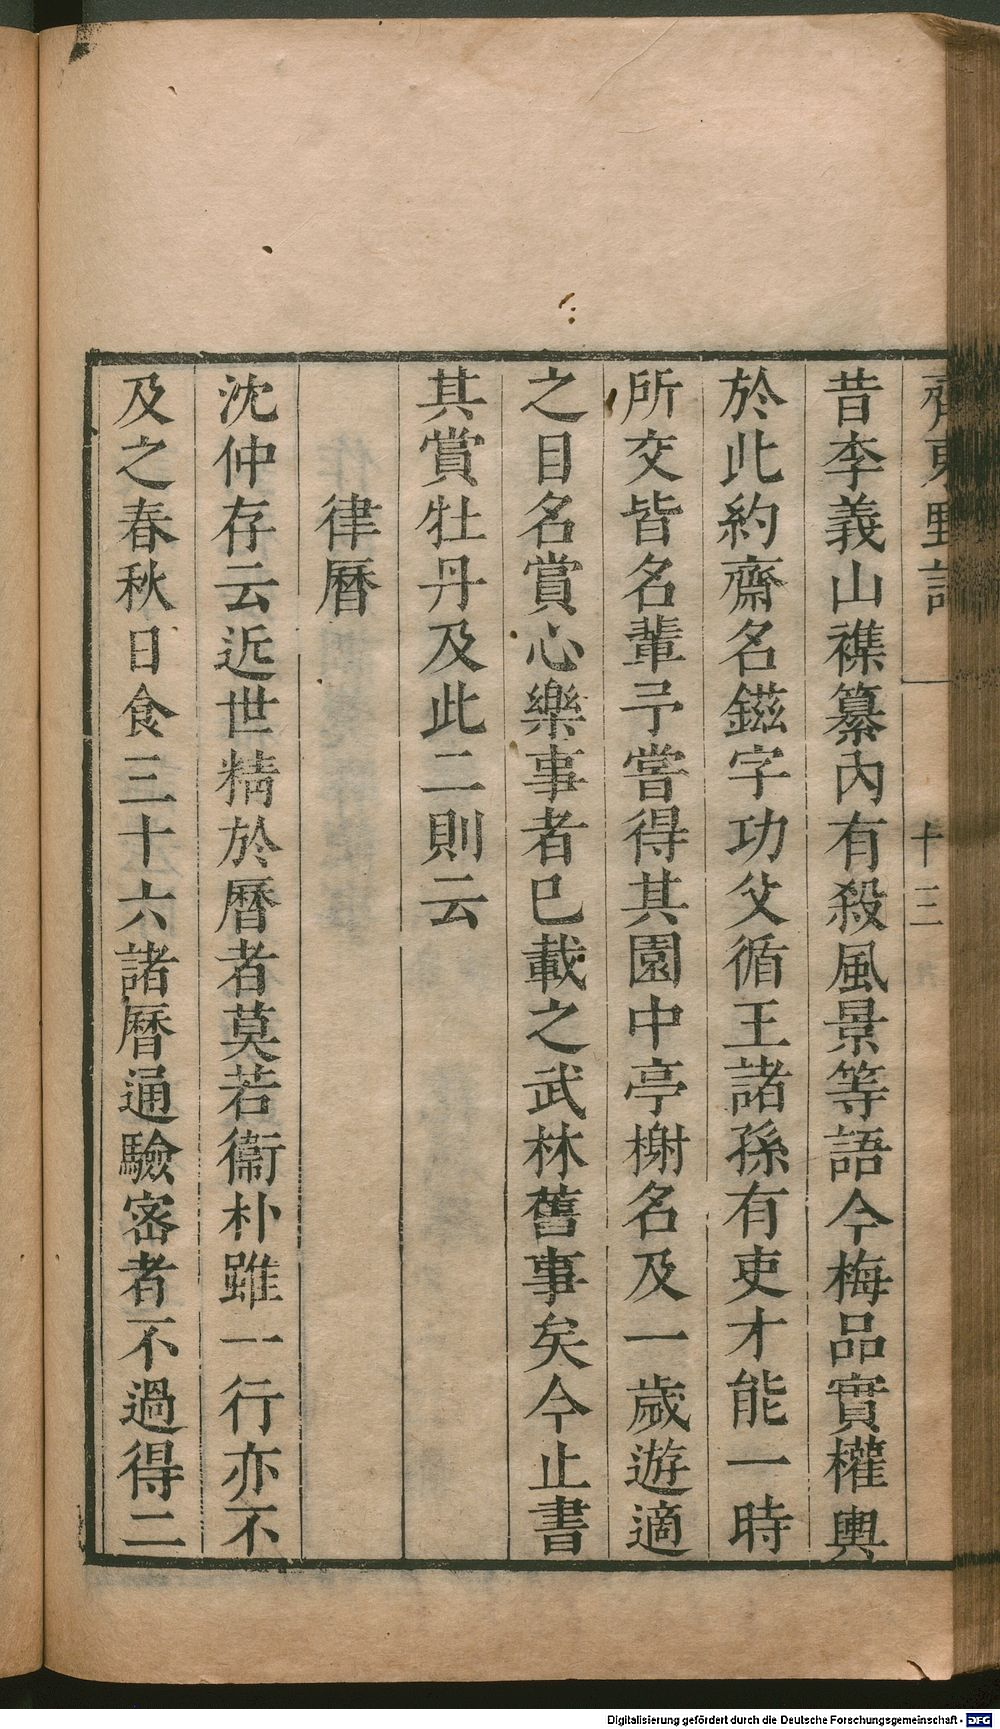 齊東野語 十三
昔李義山襍纂內有殺風景等語今梅品實權輿
於此約齋名鎡字功父循王諸孫有吏才能一時
所交皆名輩予嘗得其園中亭榭名及一歲遊適
之目名賞心樂事者已載之武林舊事矣今止書
其賞牡丹及此二則云
律曆
沈仲存云近世精於曆者莫若衞朴雖一行亦不
及之春秋日食三十六諸曆通驗密者不過得二
Digitalisierung gefördert durch die Deutsche Forschungsgemeinschaft - DFG